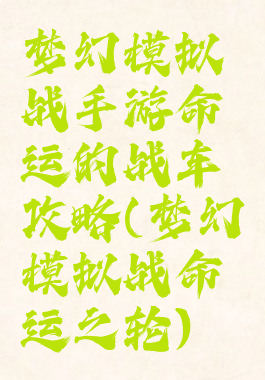 梦幻模拟
战手游命
运的战车
攻略(梦幻
模拟战命
运之轮)